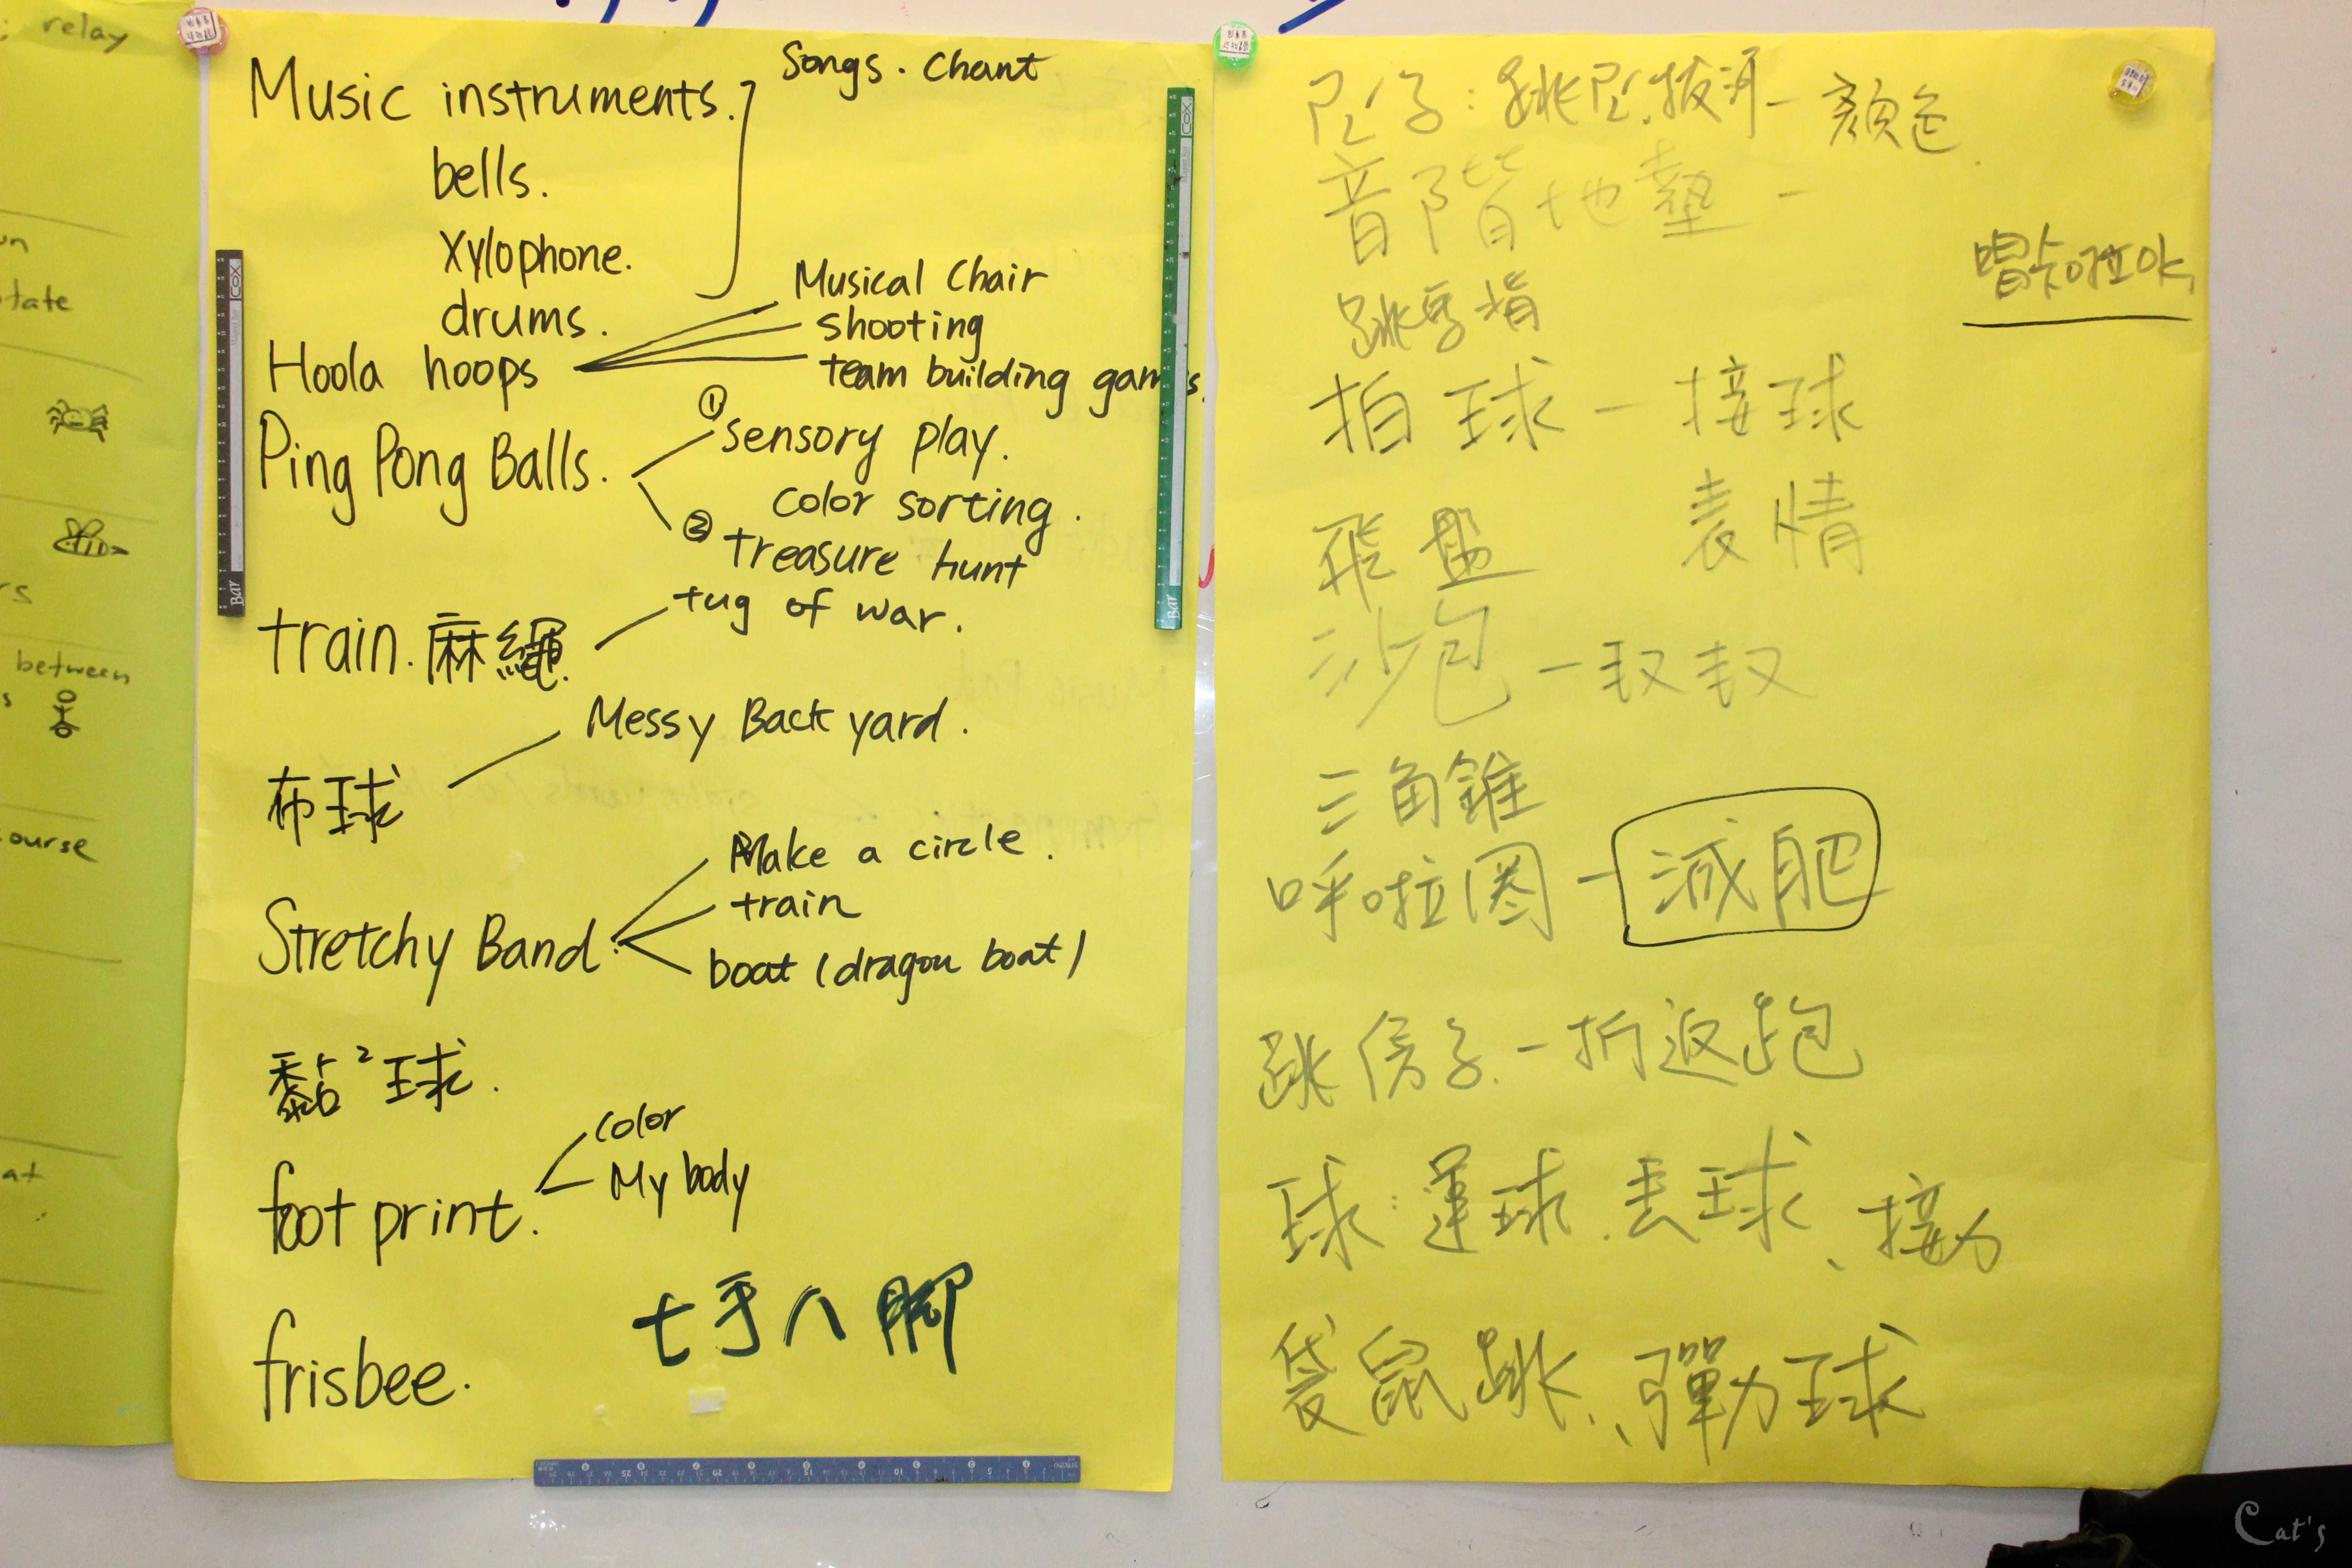 relay
tate
between
ourse
at
Music instruments.
Songs. Chant
bells.
Xylophone.
drums.
Hoola hoops
Musical Chair
shooting
team building games.
Ping Pong Balls.
① sensory play.
color sorting.
② treasure hunt
train. 麻繩.
tug of war.
布球
Messy Back yard.
Stretchy Band
Make a circle.
train
boat (dragon boat)
黏²球.
foot print.
color
My body
七手八腳
frisbee.
音階地墊 -
唱卡啦OK
拍球 - 接球
飛盤 表情
沙包 -
三角錐
呼啦圈 - 減肥
跳房子. - 折返跑
球: 運球、丟球、接力
袋鼠跳、彈力球
Cat's